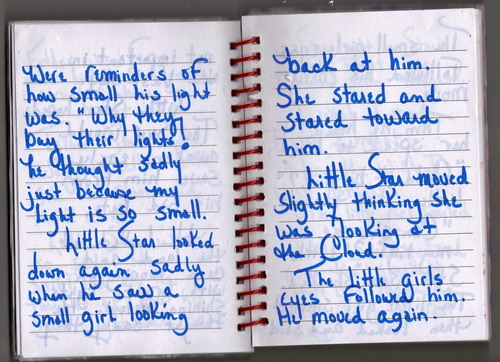 Were reminders of
how small his light
was. "Why they
buy their lights!
he thought sadly
just because my
light is so small.
Little Star looked
down again sadly
when he saw a
small girl looking
back at him.
She stared and
stared toward
him.
Little Star moved
slightly thinking she
was looking at
the Cloud.
The little girls
eyes followed him.
He moved again.